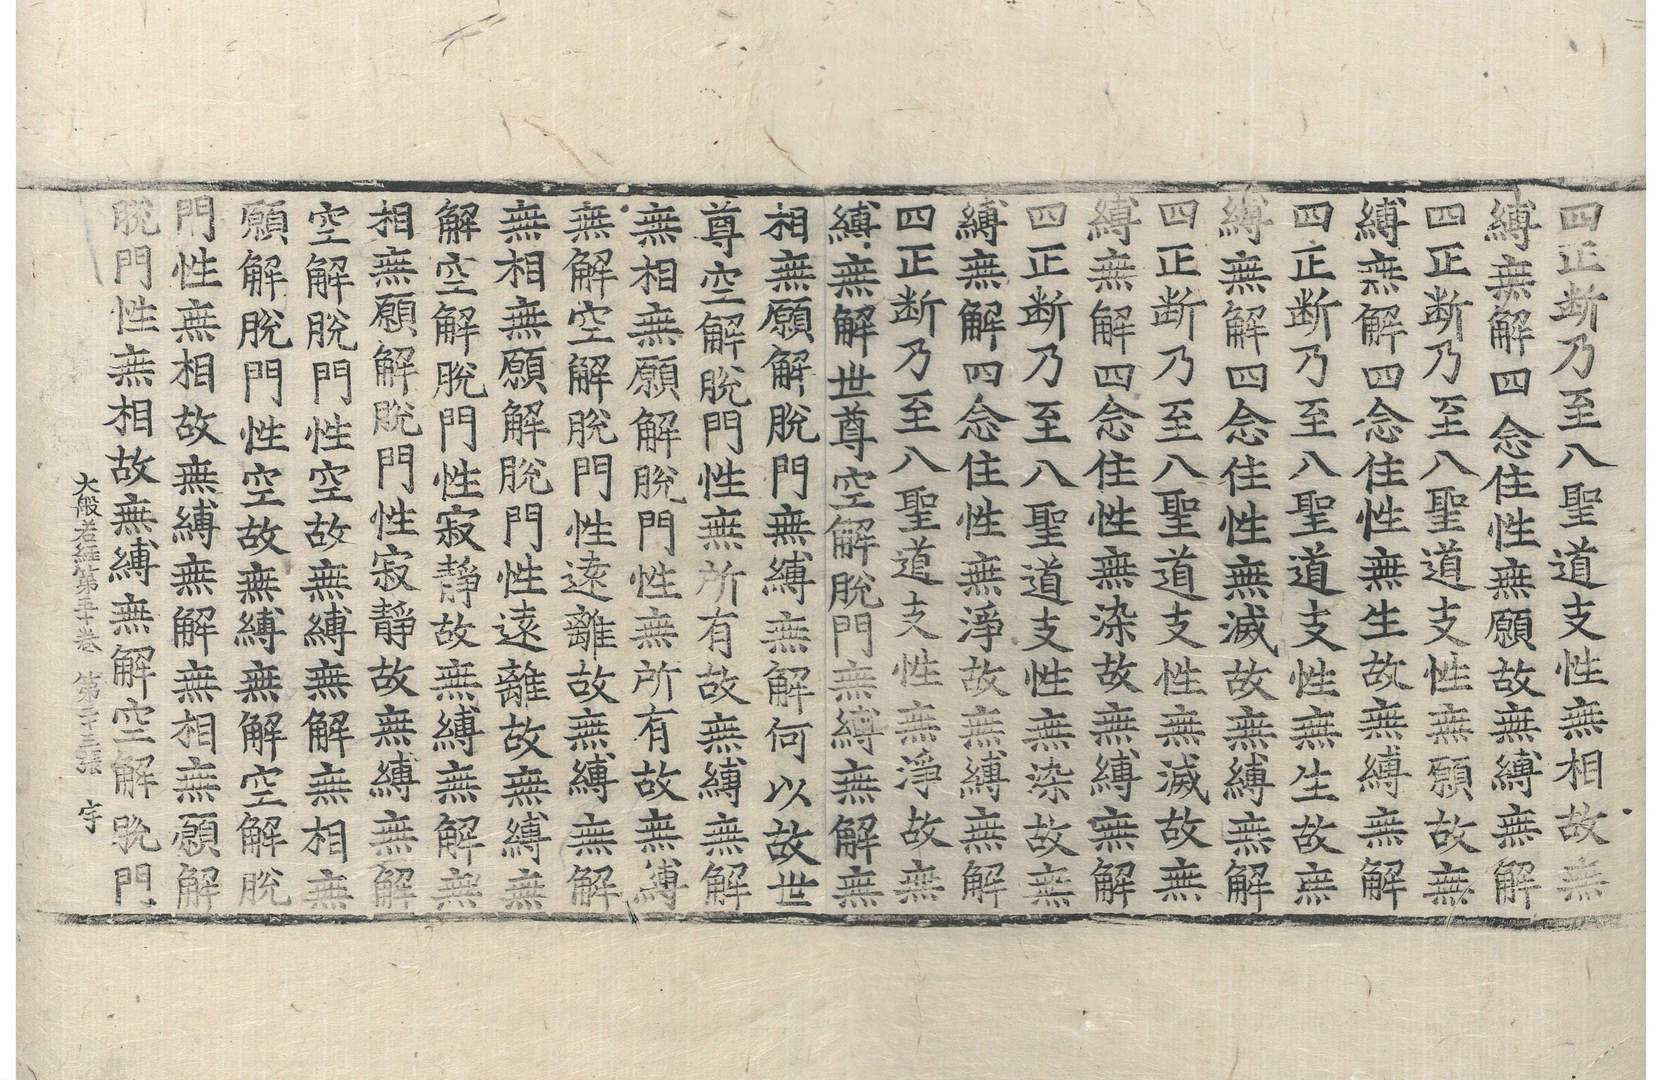 四正断乃至八聖道支性無相故無
縛無解四念住性無願故無縛無解
四正断乃至八聖道支性無願故無
縛無解四念住性無生故無縛無解
四正断乃至八聖道支性無生故無
縛無解四念住性無滅故無縛無解
四正断乃至八聖道支性無滅故無
縛無解四念住性無染故無縛無解
四正断乃至八聖道支性無染故無
縛無解四念住性無淨故無縛無解
四正断乃至八聖道支性無淨故無
縛無解世尊空解脫門無縛無解無
相無願解脫門無縛無解何以故世
尊空解脫門性無所有故無縛無解
無相無願解脫門性無所有故無縛
無解空解脫門性遠離故無縛無解
無相無願解脫門性遠離故無縛無
解空解脫門性寂靜故無縛無解無
相無願解脫門性寂靜故無縛無解
空解脫門性空故無縛無解無相無
願解脫門性空故無縛無解空解脫
門性無相故無縛無解無相無願解
脫門性無相故無縛無解空解脫門
大般若経第五十卷 第二十三張 宇